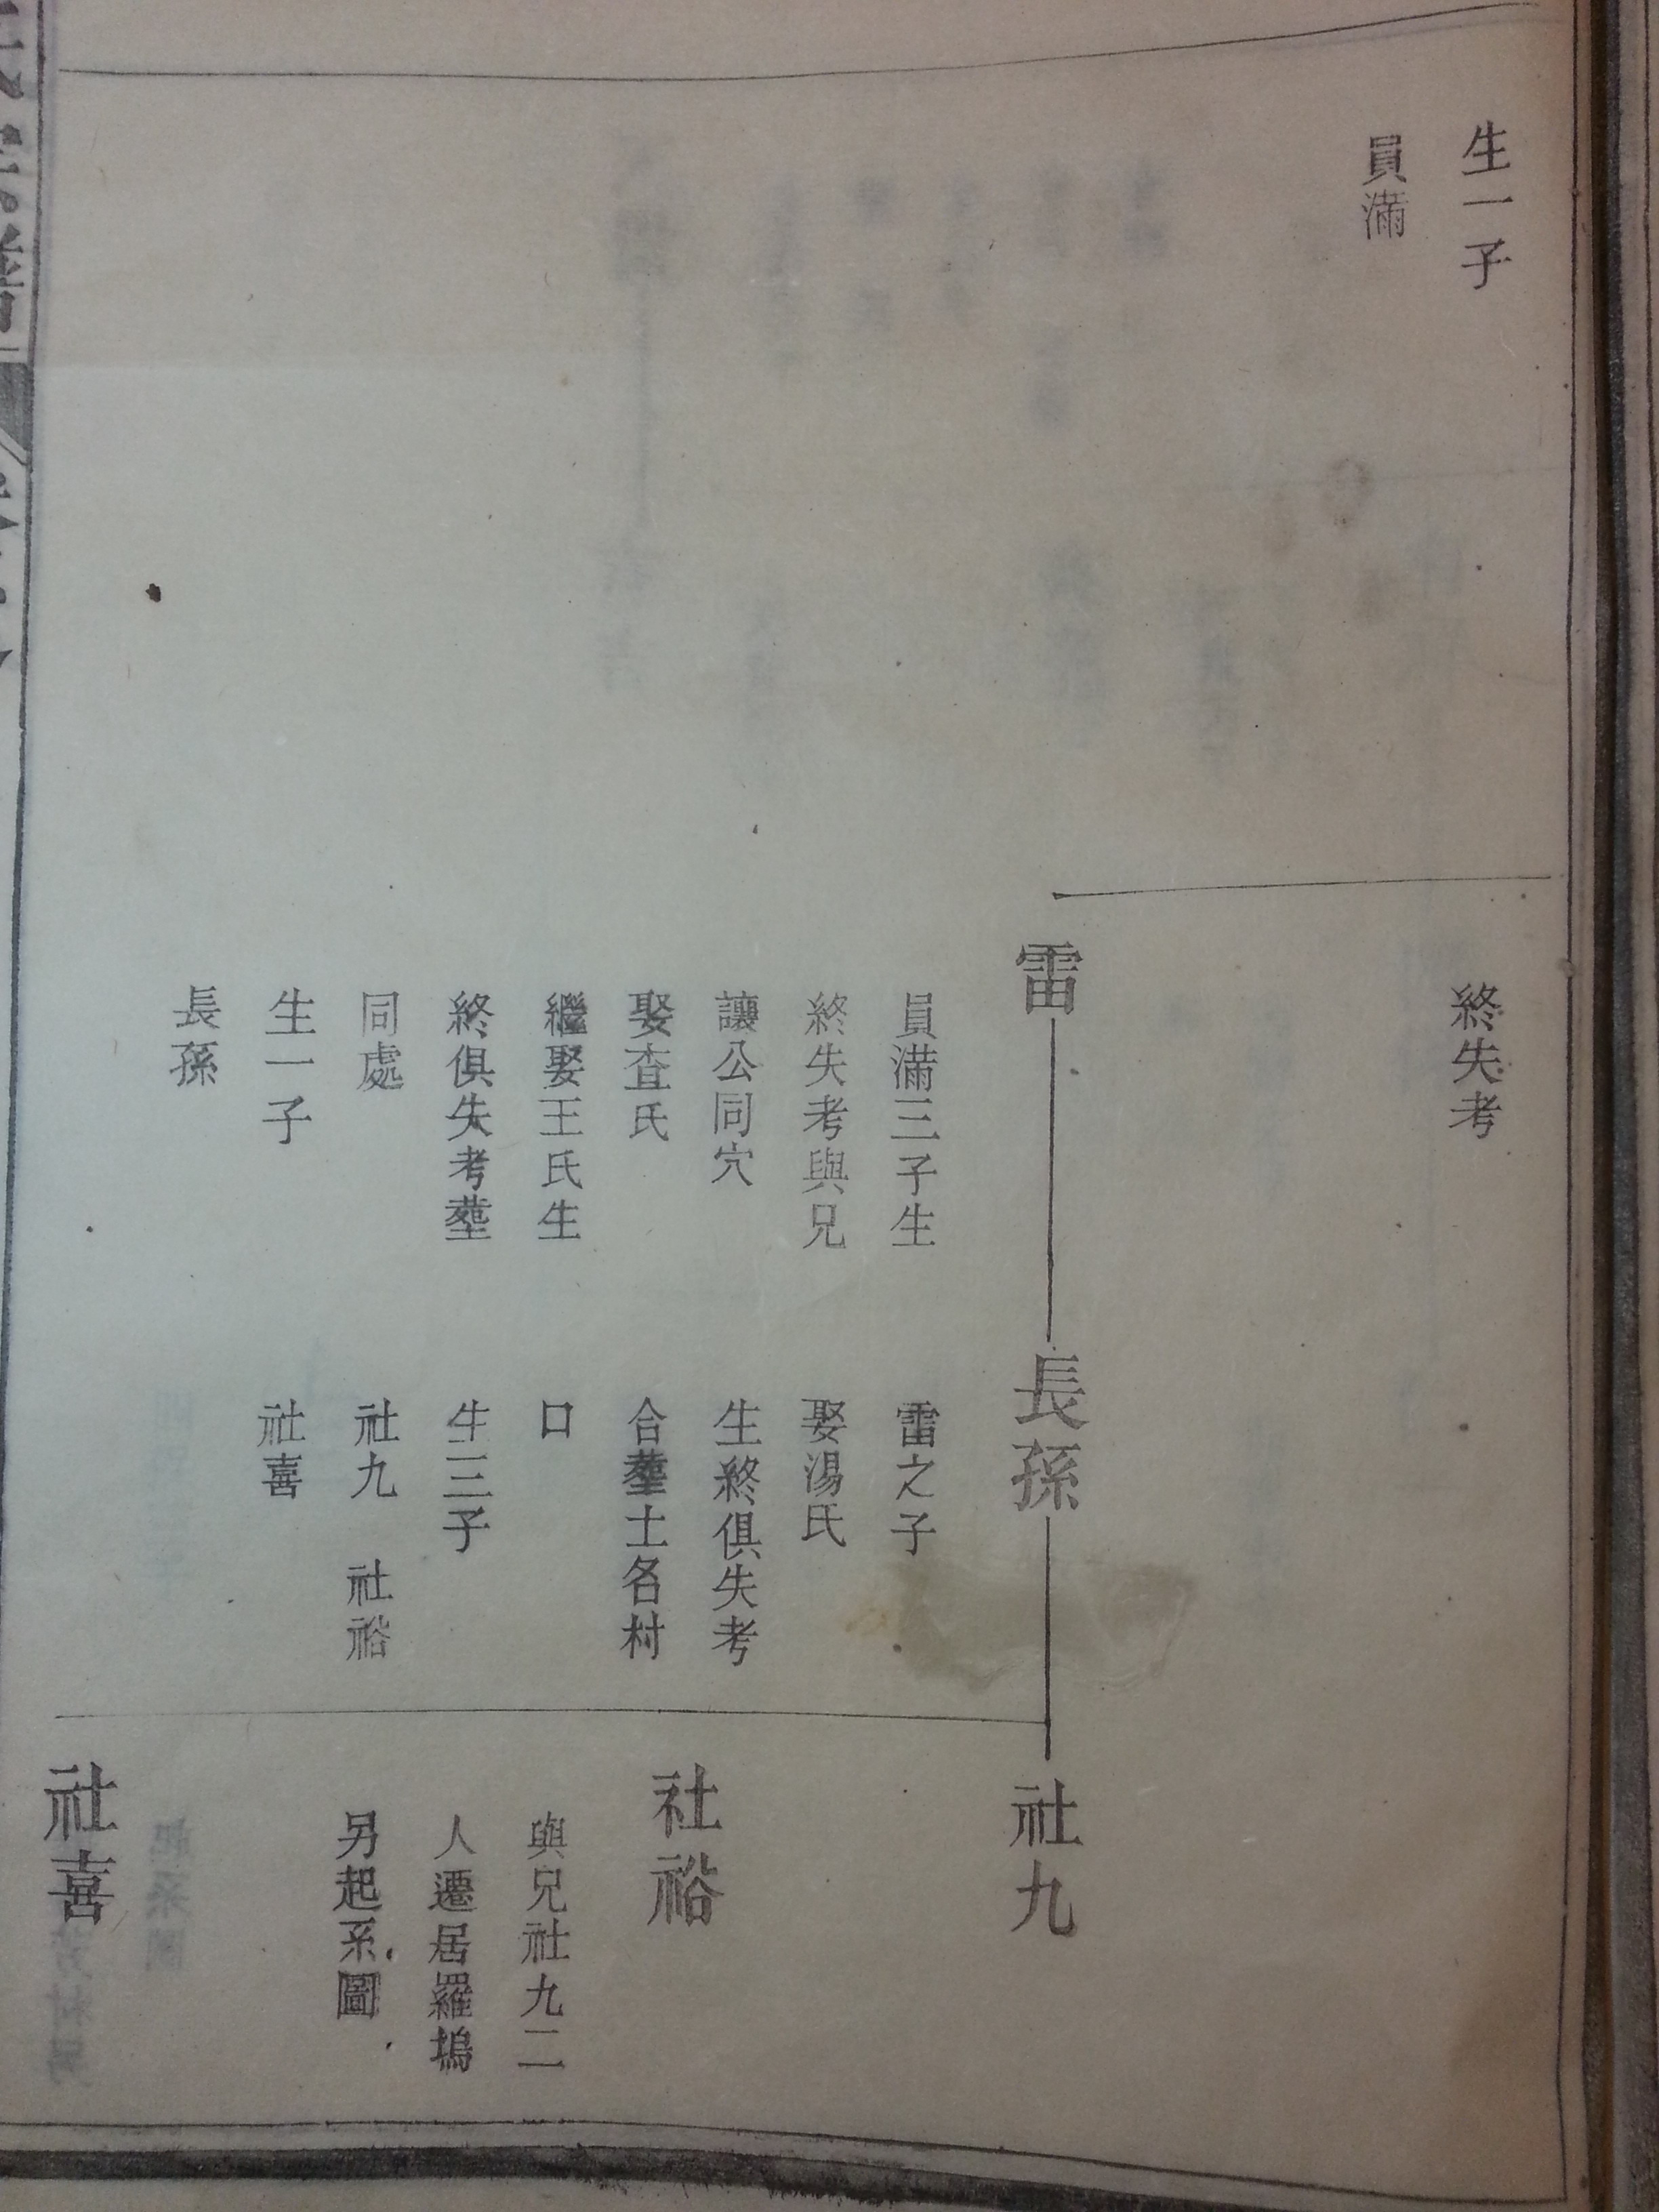 生一子
員滿
終失考
雷
員滿三子生
終失考與兄
讓公同穴
娶査氏
繼娶王氏生
終俱失考塟
同處
生一子
長孫
長孫
雷之子
娶湯氏
生終俱失考
合塟土名村
口
生三子
社九 社裕
社喜
社九
社裕
與兄社九二
人遷居羅塢
另起系圖
社喜